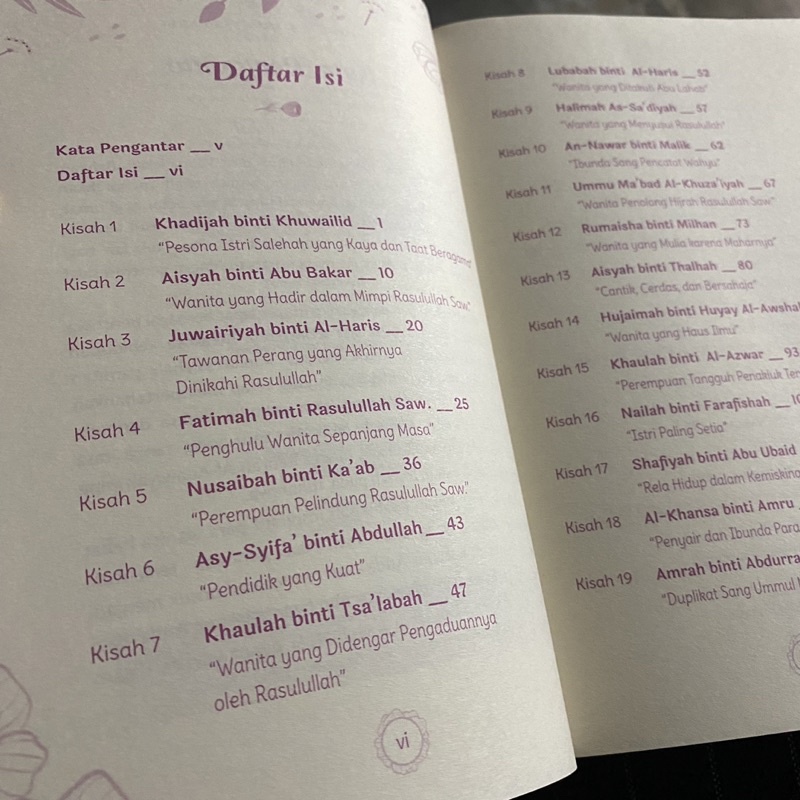 Daftar Isi
Kata Pengantar __ v
Daftar Isi __ vi
Kisah 1 Khadijah binti Khuwailid __ 1
“Pesona Istri Salehah yang Kaya dan Taat Beragama”
Kisah 2 Aisyah binti Abu Bakar __ 10
“Wanita yang Hadir dalam Mimpi Rasulullah Saw”
Kisah 3 Juwairiyah binti Al-Haris __ 20
“Tawanan Perang yang Akhirnya
Dinikahi Rasulullah”
Kisah 4 Fatimah binti Rasulullah Saw. __ 25
“Penghulu Wanita Sepanjang Masa”
Kisah 5 Nusaibah binti Ka’ab __ 36
“Perempuan Pelindung Rasulullah Saw.”
Kisah 6 Asy-Syifa’ binti Abdullah __ 43
“Pendidik yang Kuat”
Kisah 7 Khaulah binti Tsa’labah __ 47
“Wanita yang Didengar Pengaduannya
oleh Rasulullah”
vi
Kisah 8 Lubabah binti Al-Haris __ 52
“Wanita yang Ditakuti Abu Lahab”
Kisah 9 Halimah As-Sa’diyah __ 57
“Wanita yang Menyusui Rasulullah”
Kisah 10 An-Nawar binti Malik __ 62
“Ibunda Sang Pencatat Wahyu”
Kisah 11 Ummu Ma’bad Al-Khuza’iyah __ 67
“Wanita Penolong Hijrah Rasulullah Saw”
Kisah 12 Rumaisha binti Milhan __ 73
“Wanita yang Mulia karena Maharnya”
Kisah 13 Aisyah binti Thalhah __ 80
“Cantik, Cerdas, dan Bersahaja”
Kisah 14 Hujaimah binti Huyay Al-Awsha
“Wanita yang Haus Ilmu”
Kisah 15 Khaulah binti Al-Azwar __ 93
“Perempuan Tangguh Penakluk Ter
Kisah 16 Nailah binti Farafishah __ 10
“Istri Paling Setia”
Kisah 17 Shafiyah binti Abu Ubaid
“Rela Hidup dalam Kemiskina
Kisah 18 Al-Khansa binti Amru
“Penyair dan Ibunda Para
Kisah 19 Amrah binti Abdurra
“Duplikat Sang Ummul